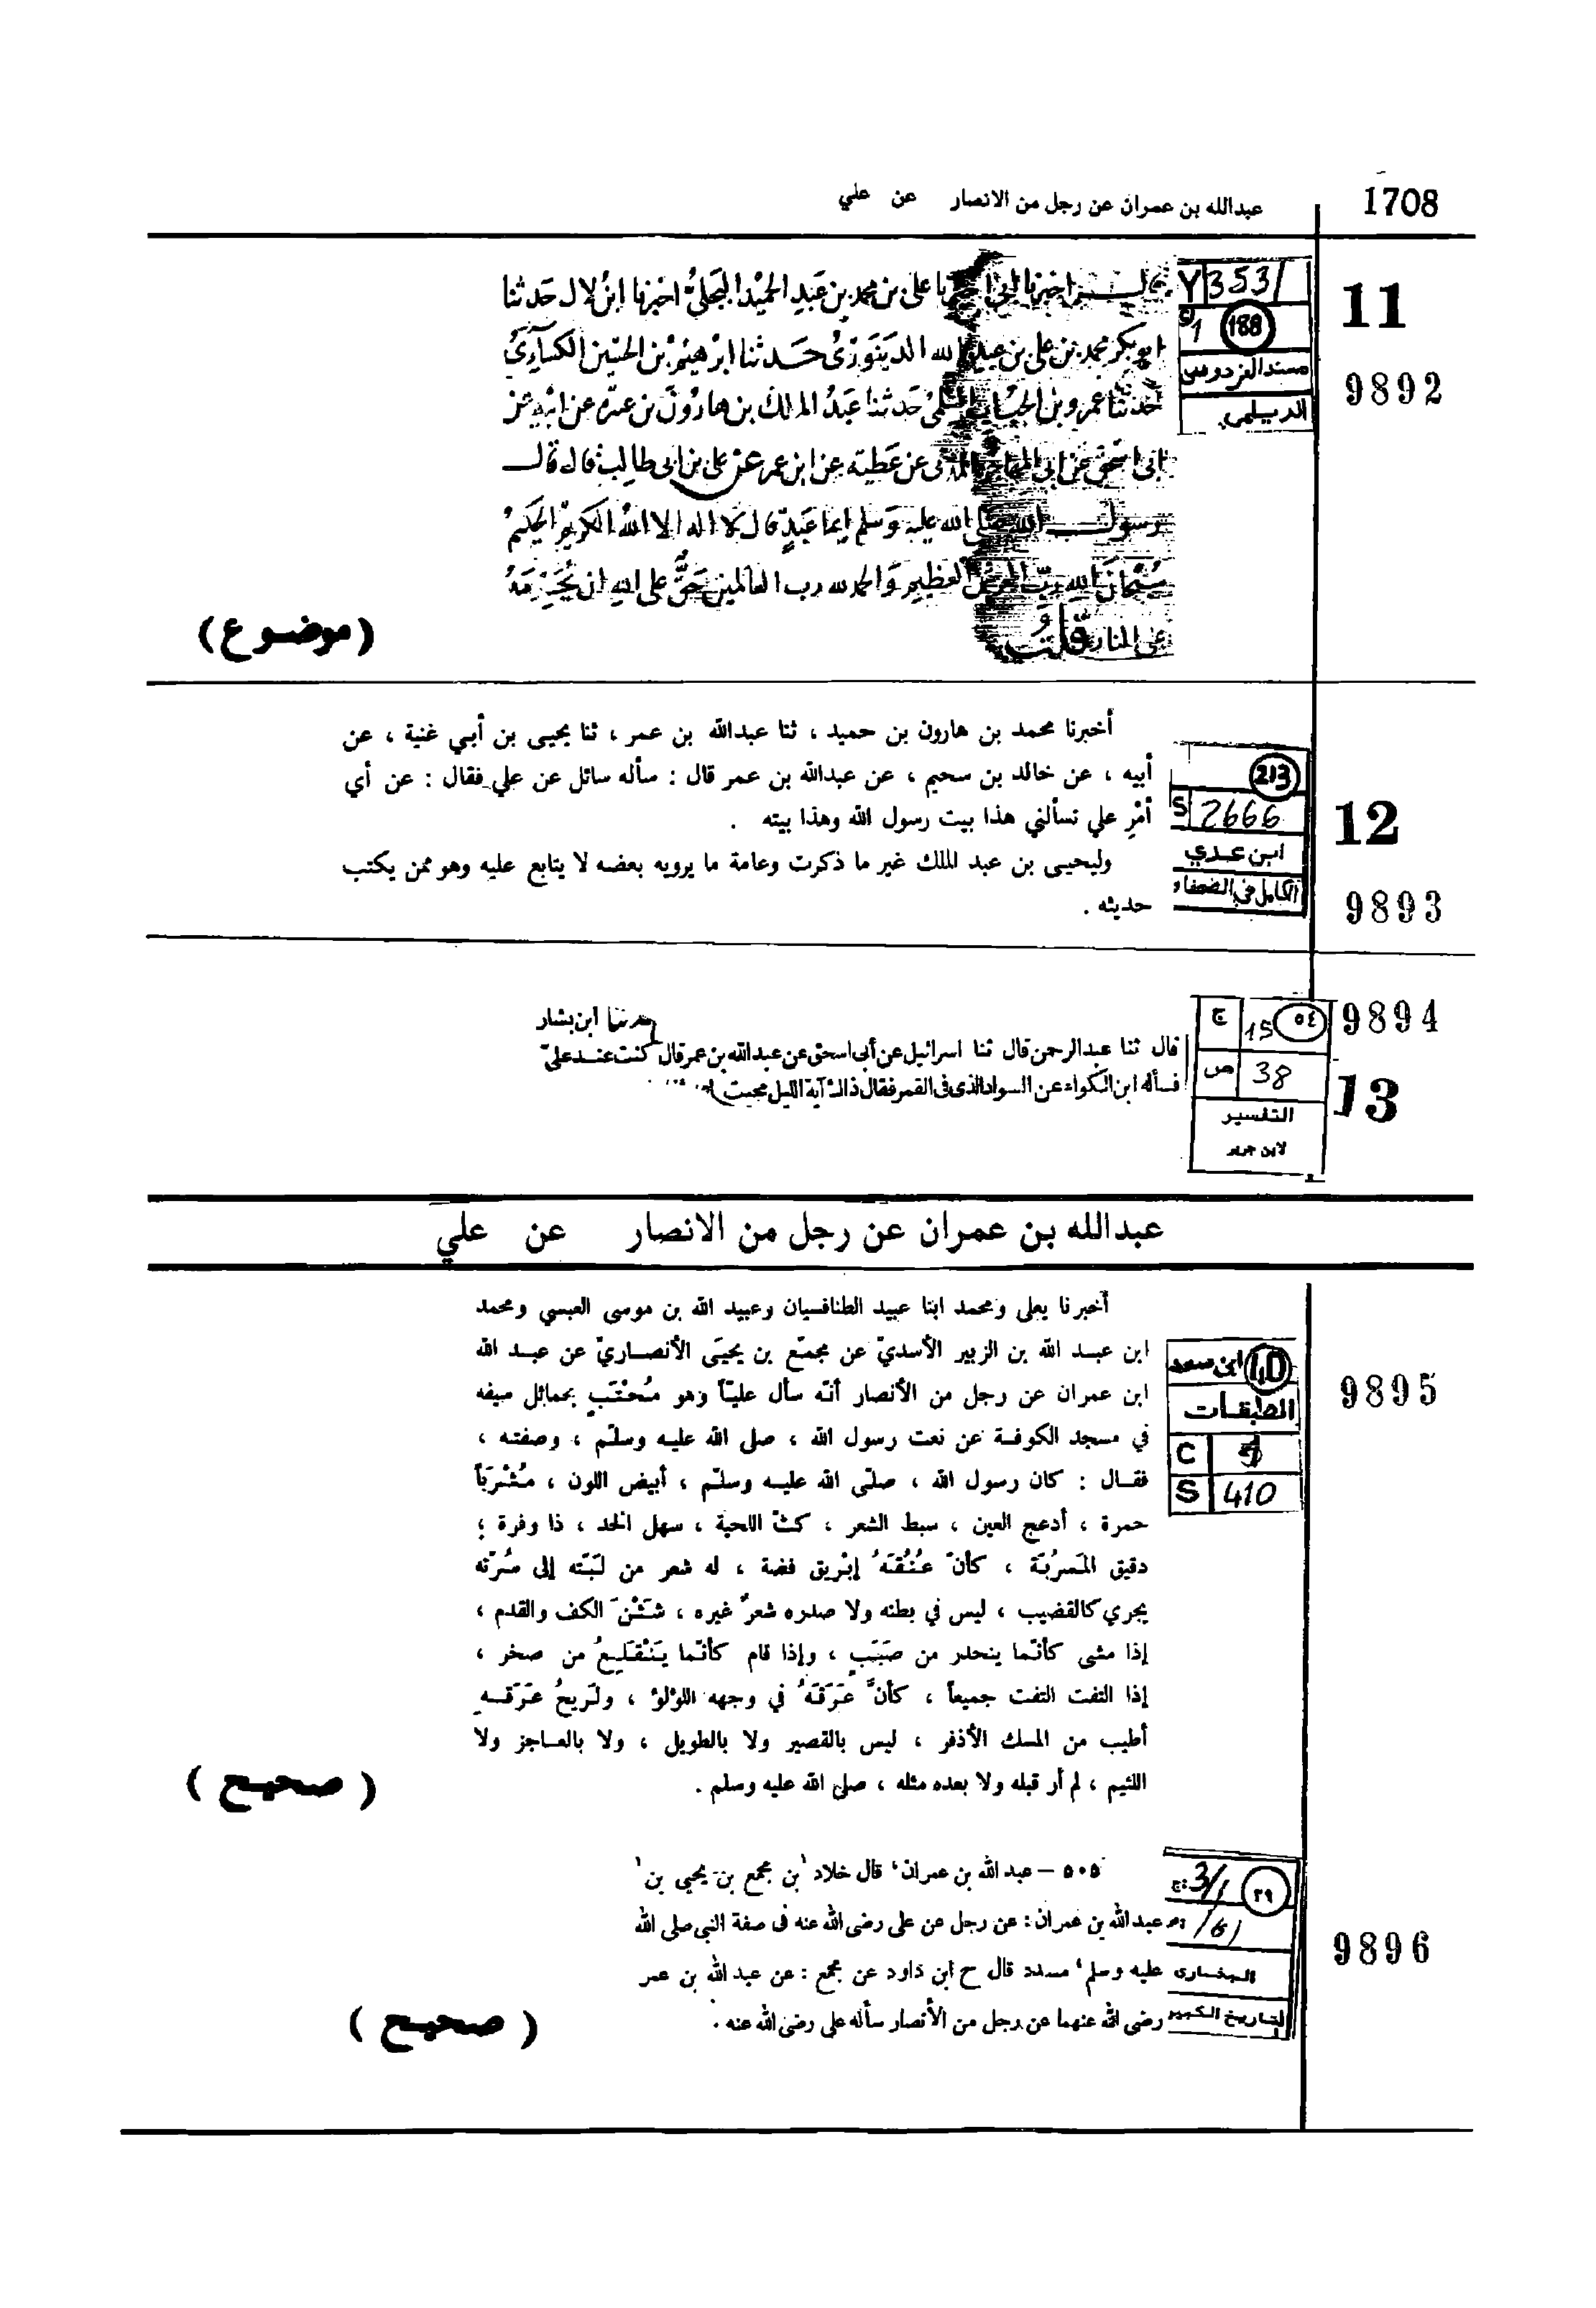 1708
عبدالله بن عمران عن رجل من الانصار عن علي
11
9892
Y 353/
188
1
مسند الفردوس
الديلمي
اخبرنا ابي اخبرنا علي بن محمد بن عبد الحميد البجلي اخبرنا ابن لال حدثنا
ابو بكر محمد بن علي بن عبد الله الدينوري حدثنا ابرهيم بن الحسين الكسائي
حدثنا عمرو بن حدثنا عبد الملك بن هارون بن عنترة عن ابيه عن
ابي اسحق عن ابي عن عطية عن ابن عمر عن علي بن ابي طالب قال قال
رسول الله صلى الله عليه وسلم ايما عبد قال لا اله الا الله الكريم الحكيم
سُبْحَانَ الله رب العرش العظيم والحمد لله رب العالمين حَقٌّ على الله ان يُحَرِّمَهُ
على النار قلت
(موضوع)
213
S 2666
ابن عدي
الكامل في الضعفاء
12
9893
أخبرنا محمد بن هارون بن حميد ، ثنا عبدالله بن عمر ، ثنا يحيى بن أبي غنية ، عن
أبيه ، عن خالد بن سحيم ، عن عبدالله بن عمر قال : سأله سائل عن علي فقال : عن أي
أمْرِ علي تسألني هذا بيت رسول الله وهذا بيته .
وليحيى بن عبد الملك غير ما ذكرت وعامة ما يرويه بعضه لا يتابع عليه وهو ممن يكتب
حديثه .
9894
13
ج 15 ٥٤
ص 38
التفسير
لابن جرير
حدثنا ابن بشار
قال ثنا عبدالرحمن قال ثنا اسرائيل عن أبي اسحق عن عبدالله بن عمر قال كنت عند علي
فسأله ابن الكواء عن السواد الذى فى القمر فقال ذاك آية الليل محيت
عبدالله بن عمران عن رجل من الانصار عن علي
9895
40 ابن سعد
الطبقات
C
S 410
أخبرنا يعلى ومحمد ابنا عبيد الطنافسيان وعبيد الله بن موسى العبسي ومحمد
ابن عبد الله بن الزبير الأسديّ عن مجمّع بن يحيَى الأنصاريّ عن عبد الله
ابن عمران عن رجل من الأنصار أنّه سأل عليّاً وهو مُحْتَبٍ بحمائل سيفه
في مسجد الكوفة عن نعت رسول الله ، صلى الله عليه وسلّم ، وصفته ،
فقال : كان رسول الله ، صلّى الله عليه وسلّم ، أبيض اللون ، مُشْرَباً
حمرة ، أدعج العين ، سبط الشعر ، كثّ اللحية ، سهل الخد ، ذا وفرة ؛
دقيق المَسرُبَة ، كأنّ عُنُقَهُ إبْريق فضة ، له شعر من لَبّته إلى سُرّته
يجري كالقضيب ، ليس في بطنه ولا صدره شعرٌ غيره ، شَثْنَ الكف والقدم ،
إذا مشى كأنّما ينحدر من صَبَبٍ ، وإذا قام كأنّما يَنْقَلِعُ من صخر ،
إذا التفت التفت جميعاً ، كأنّ عَرَقَهُ في وجهه اللؤلؤ ، ولَريحُ عَرَقه
أطيب من المسك الأذفر ، ليس بالقصير ولا بالطويل ، ولا بالعاجز ولا
اللئيم ، لم أر قبله ولا بعده مثله ، صلى الله عليه وسلم .
( صحيح )
9896
ج: 3/1 ٣٩
ص: 161
البخارى
التاريخ الكبير
٥٠٥ – عبد الله بن عمران، قال خلاد ابن مجمع بن يحيى بن
عبدالله بن عمران: عن رجل عن على رضى الله عنه فى صفة النبى صلى الله
عليه وسلم، مسدد قال ح ابن داود عن مجمع : عن عبد الله بن عمر
رضى الله عنهما عن رجل من الأنصار سأله على رضى الله عنه .
( صحيح )